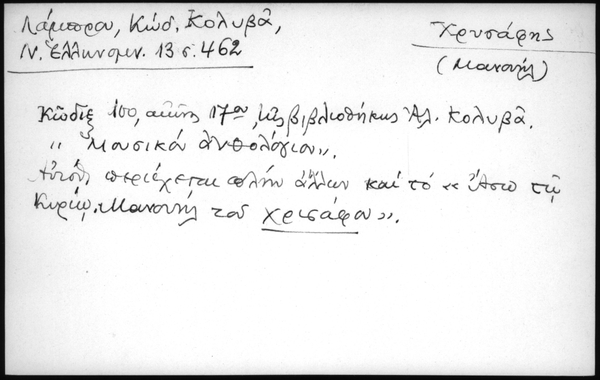 Λάμπρου, Κώδ. Κολυβᾶ,
Ν. Ἑλληνομν. 13 σ. 462
Χρυσάφης
(Μανουήλ)
Κῶδιξ 100, αἰῶνος 17ου, τῆς βιβλιοθήκης Ἀλ. Κολυβᾶ.
"Μουσικὸν ἀνθολόγιον".
Αὐτόθι περιέχεται πλὴν ἄλλων καὶ τὸ «Ἄσω τῷ
Κυρίῳ, Μανουὴλ τοῦ χρισάφου».